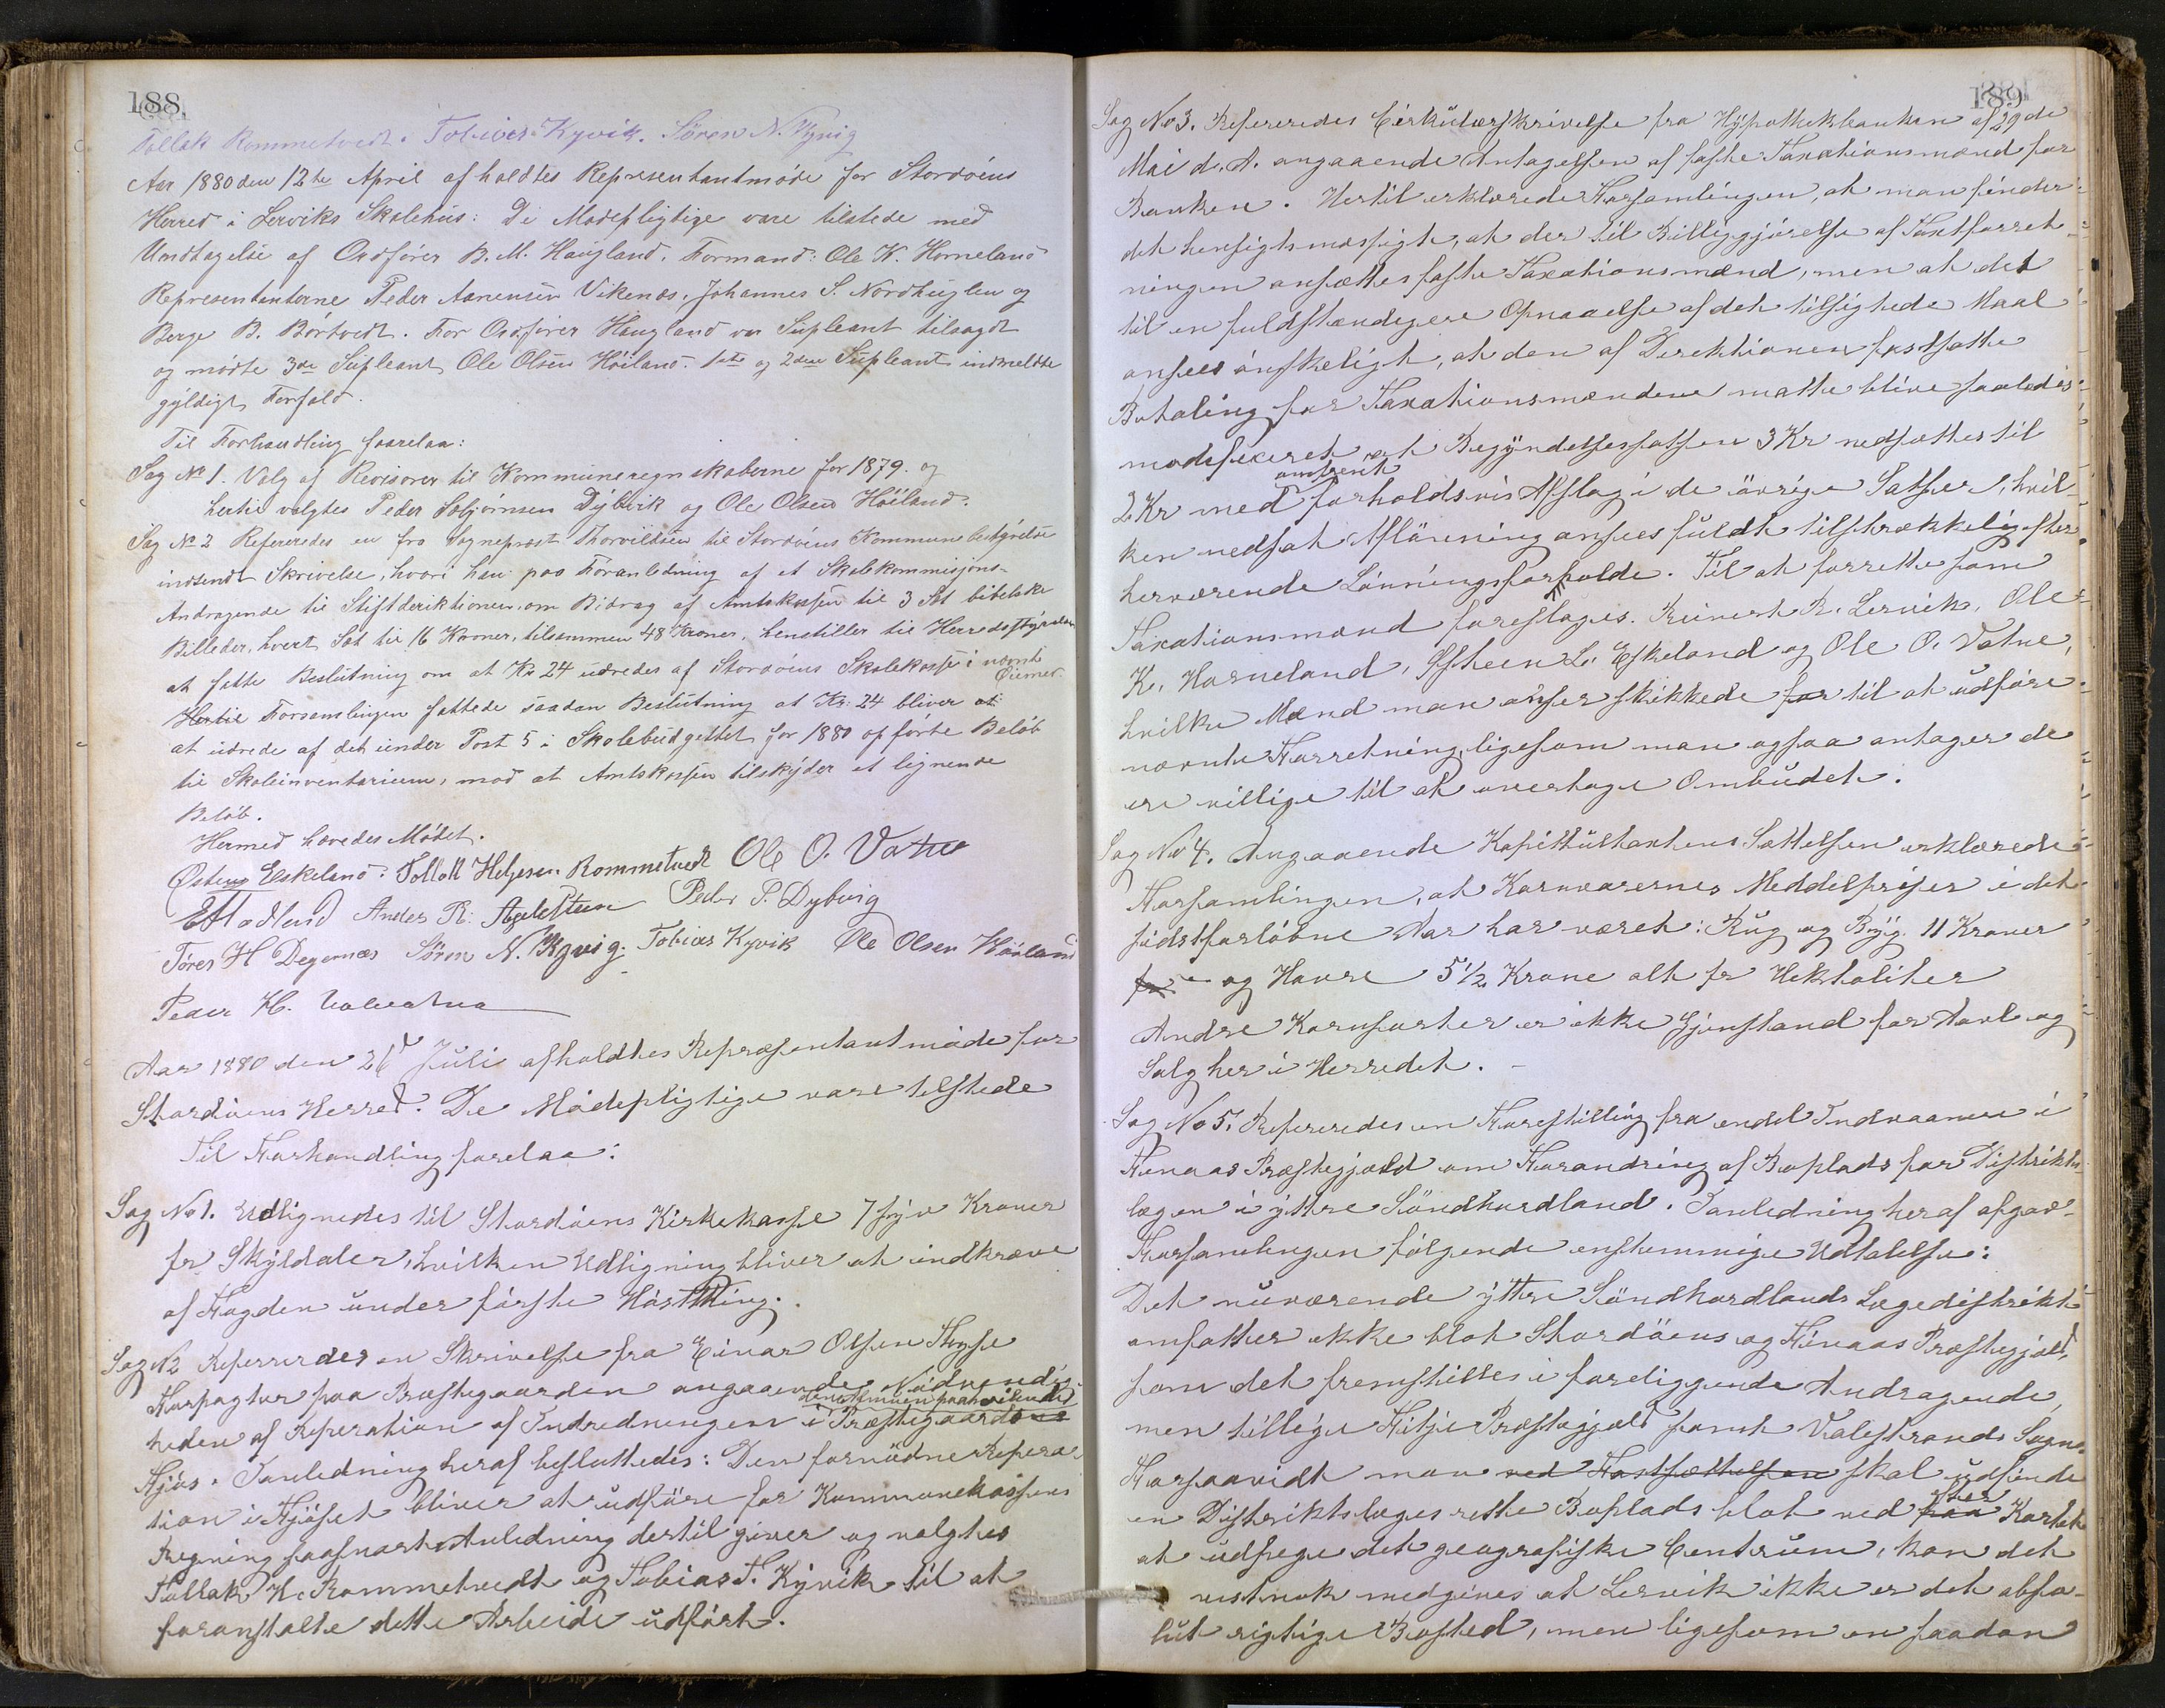 188
Tollak Rommetvedt. Tobias Kyvik. Sören N. Kyvig
Aar 1880 den 12te April afholdtes Representantmöde for Stordöens
Herred i Lerviks Skolehus: De Mödepligtige vare tilstede med
Undtagelse af Ordförer B. M. Haugland. Formand: Ole K. Horneland
Representanterne Peder Aanensen Vikenæs, Johannes S. Nordhuglen og
Berge B. Börtvedt. For Ordförer Haugland var Supleant tilsagdt
og mödte 3die Supleant Ole Olsen Höiland. 1ste og 2den Supleant indmeldte
gyldigt Forfald.
Til Forhandling foorelaa:
Sag No 1. Valg af Revisorer til Kommuneregnskaberne for 1879. og
hertil valgtes Peder Döbjörnsen Dybvik og Ole Olsen Höiland.
Sag No 2 Refereredes en fra Sogneprest Thorvildsen til Stordöens Kommunebestyrelse
indsendt Skrivelse, hvori han paa Foranledning af et Skolekommisjons-
Andragende til Stiftdirektionen om Bidrag af Amtskassen til 3 Set bibelske
Billeder, hvert Set til 16 Kroner, tilsammen 48 Kroner, henstiller til Herredsstyrelsen
at fatte Beslutning om at Kr 24 udredes af Stordöens Skolekasse i nævnte Öiemed.
Hertil Forsamlingen fattede saadan Beslutning at Kr: 24 bliver at
at udrede af det under Post 5 i Skolebudgettet for 1880 opförte Belöb
til Skoleinventarium, mod at Amtskassen tilskyder et lignende
Belöb.
Hermed hævedes Mödet.
Östen Eskeland. Tollak Helgesen Rommetvedt Ole O. Vatne
E Hodlund Andes R. Agelesteen Peder P. Dybvig
Töres H Degernæs Sören N. Kyvig. Tobias Kyvik Ole Olsen Höiland
Peder H. Valvatna
Aar 1880 den 26d Juli afholdtes Repræsentantmöde for
Stordöens Herred. De Mödepligtige vare tilstede
Til Forhandling forelaa:
Sag No 1. Udlignedes til Stordöens Kirkekasse 7 syv Kroner
pr Skyldaler, hvilken Udligning bliver at indkræve
af Fogden under förste Höstthing.
Sag No 2 Refereredes en Skrivelse fra Einar Olsen Huse
Forpagter paa Præstegaarden angaaende Nödvendig-
heden af Reperation af Indredningen i det Kommunen paahvilende Præstegaardens
Fjös. I Anledning heraf besluttedes: Den fornödne Repera-
tion i Fjöset bliver at udföre for Kommunekassens
Regning saasnart Anledning dertil gives og valgtes
Tollak H. Rommetvedt og Tobias T. Kyvik til at
foranstalte dette Arbeide udfört.
189
Sag No 3. Refereredes Cirkulærskrivelse fra Hypothekbanken af 29de
Mai d. A. angaaende Antagelsen af faste Taxationsmænd for
Banken. Hertil erklærede Forsamlingen, at man finder
det hensigtsmæssigt, at der til Billiggjörelse af Taxtforret-
ningen ansættes faste Taxationsmænd, men at det
til en fuldstændigere Opnaaelse af det tilsigtede Maal
ansees önskeligt, at den af Direktionen fastsatte
Betaling for Taxationsmændene maatte blive saaledes
modificeret at Begyndelsessatsen 3 Kr nedsættes til
2 Kr med omtrent forholdsvis Afslag i de övrige Satser, hvil-
ken nedsat Aflönning ansees fuldt tilstrækkelig efter
herværende Lönningsforholde. Til at forrette som
Taxationsmænd foreslages. Reinert R. Lervik, Ole
K. Horneland, Östeen L. Eskeland og Ole O. Vatne,
hvilke Mænd man anser skikkede for til at udföre
nævnte Forretning, ligesom man ogsaa antager de
ere villige til at overtage Ombudet.
Sag No 4. Angaaende Kapitultaxtens Sættelsen erklærede
Forsamlingen, at Kornvarernes Meddelpriser i det
sidstforlöbne Aar har været: Rug og Byg 11 Kroner
for og Havre 5 1/2 Krone alt pr Hektoliter
Andre Kornsorter er ikke Gjenstand for Avl og
Salg her i Herredet. -
Sag No 5. Refereredes en Forestilling fra endel Indvaanere i
Finaas Præstegjæld om Forandring af Boplads for Distrikts-
lægen i yttre Söndhordland. I Anledning heraf afgav
Forsamlingen fölgende enstemmige Udtalelse:
Det nuværende yttre Söndhordlands Lægedistrikt
omfatter ikke blot Stordöens og Finaas Præstegjæld,
som det fremstilles i foreliggende Andragende,
men tillige Fitje Præstegjæld samt Valestrands Sogn.
Forsaavidt man ved Fastsættelsen skal udfinde
en Distriktslæges rette Boplads blot ved paa efter Kartet
at udsøge det geografiske Centrum, kan det
vistnok medgives at Lervik ikke er det abso-
lut rigtige Bosted, men ligesom en saadan